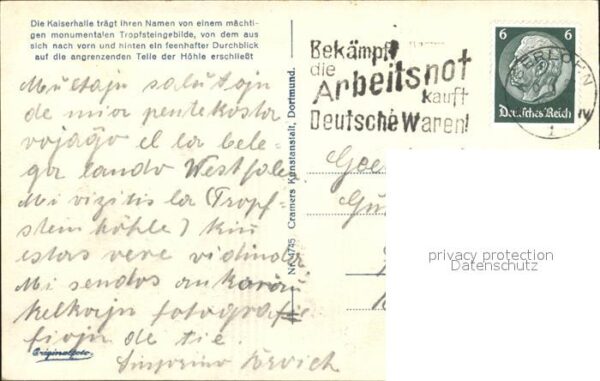 Die Kaiserhalle trägt ihren Namen von einem mächti-
gen monumentalen Tropfsteingebilde, von dem aus
sich nach vorn und hinten ein feenhafter Durchblick
auf die angrenzenden Teile der Höhle erschließt
Multajn salutojn
de mia pentekosta
vojaĝo el la bele-
ga lando Westfalen
Mi vizitis la (Tropf-
steinhöhle) kiu
estas vere vidinda
Mi sendos ankoraŭ
kelkajn fotografi-
de tie.
Originalfoto
Nr. 4745 Cramers Kunstanstalt, Dortmund.
Bekämpft
die
Arbeitsnot
kauft
Deutsche Waren!
6 6
Deutsches Reich
ISERLOHN
privacy protection
Datenschutz